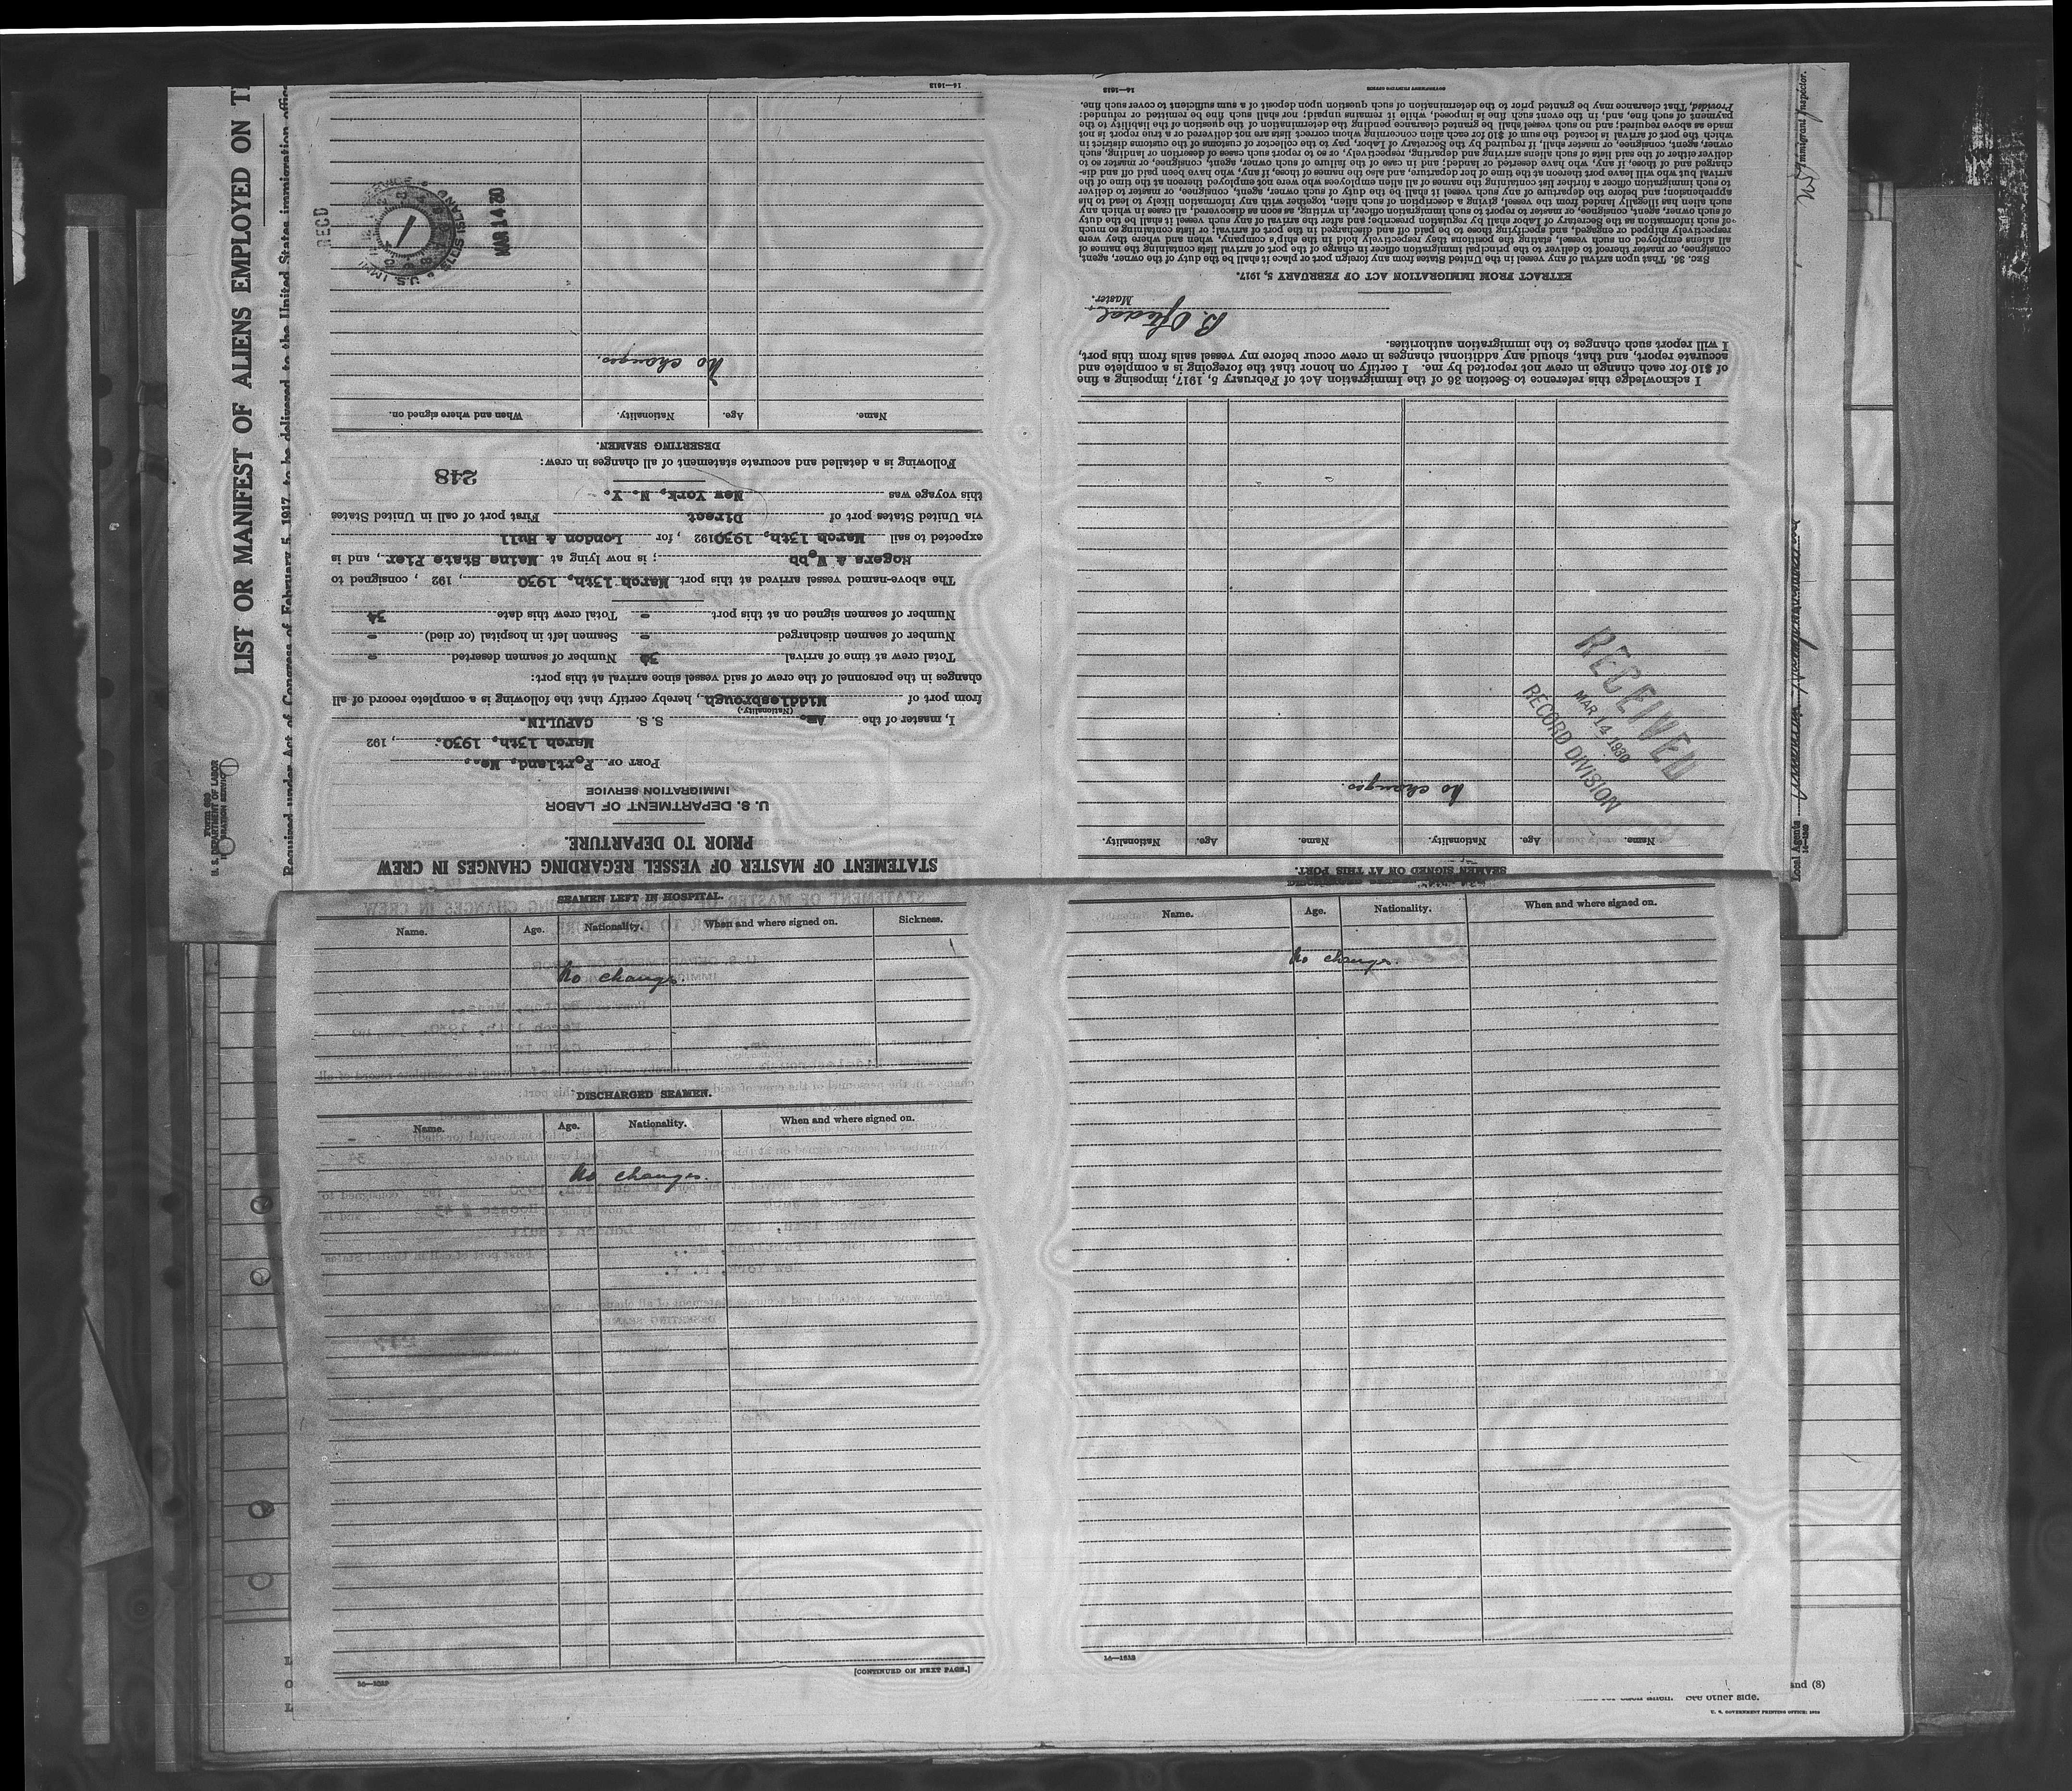 LIST OR MANIFEST OF ALIENS EMPLOYED ON
Required under Act of Congress of February 5, 1917, to be delivered to the United States immigration
U. S. DEPARTMENT OF LABOR
STATEMENT OF MASTER OF VESSEL REGARDING CHANGES IN CREW
PRIOR TO DEPARTURE.
U. S. DEPARTMENT OF LABOR
IMMIGRATION SERVICE
PORT OF Portland, Me.,
March 13th, 1930. , 192
I, master of the Am. S. S. CAPULIN.
(Nationality.)
from port of Middlesbrough, hereby certify that the following is a complete record of all
changes in the personnel of the crew of said vessel since arrival at this port:
Total crew at time of arrival 34 Number of seamen deserted -
Number of seamen discharged - Seamen left in hospital (or died) -
Number of seamen signed on at this port - Total crew this date 34
The above-named vessel arrived at this port March 13th, 1930, 192 , consigned to
Rogers & Webb ; is now lying at Maine State Pier, and is
expected to sail March 13th, 1930 192 , for London & Hull
via United States port of Direct First port of call in United States
this voyage was New York, N. Y.
248
Following is a detailed and accurate statement of all changes in crew:
DESERTING SEAMEN.
Name. Age. Nationality. When and where signed on.
No changes.
RECD
MAR 14 30
16—1613
SEAMEN SIGNED ON AT THIS PORT.
Name. Age. Nationality. Name. Age. Nationality.
No changes.
RECEIVED
MAR 14 1930
RECORD DIVISION
I acknowledge this reference to Section 36 of the Immigration Act of February 5, 1917, imposing a fine
of $10 for each change in crew not reported by me. I certify on honor that the foregoing is a complete and
accurate report, and that, should any additional changes in crew occur before my vessel sails from this port,
I will report such changes to the immigration authorities.
Master.
EXTRACT FROM IMMIGRATION ACT OF FEBRUARY 5, 1917.
SEC. 36. That upon arrival of any vessel in the United States from any foreign port or place it shall be the duty of the owner, agent,
consignee, or master thereof to deliver to the principal immigration officer in charge of the port of arrival lists containing the names of
all aliens employed on such vessel, stating the positions they respectively hold in the ship's company, when and where they were
respectively shipped or engaged, and specifying those to be paid off and discharged in the port of arrival; or lists containing so much
of such information as the Secretary of Labor shall by regulation prescribe; and after the arrival of any such vessel it shall be the duty
of such owner, agent, consignee, or master to report to such immigration officer, in writing, as soon as discovered, all cases in which any
such alien has illegally landed from the vessel, giving a description of such alien, together with any information likely to lead to his
apprehension; and before the departure of any such vessel it shall be the duty of such owner, agent, consignee, or master to deliver
to such immigration officer a further list containing the names of all alien employees who were not employed thereon at the time of the
arrival but who will leave port thereon at the time of her departure, and also the names of those, if any, who have been paid off and dis-
charged and of those, if any, who have deserted or landed; and in case of the failure of such owner, agent, consignee, or master so to
deliver either of the said lists of such aliens arriving and departing, respectively, or so to report such cases of desertion or landing, such
owner, agent, consignee, or master shall, if required by the Secretary of Labor, pay to the collector of customs of the customs district in
which the port of arrival is located the sum of $10 for each alien concerning whom correct lists are not delivered or a true report is not
made as above required; and no such vessel shall be granted clearance pending the determination of the question of the liability to the
payment of such fine, and, in the event such fine is imposed, while it remains unpaid; nor shall such fine be remitted or refunded:
Provided, That clearance may be granted prior to the determination of such question upon deposit of a sum sufficient to cover such fine.
GOVERNMENT PRINTING OFFICE
16—1613
Immigrant Inspector.
Local Agents
SEAMEN LEFT IN HOSPITAL.
Name. Age. Nationality. When and where signed on. Sickness.
No changes.
DISCHARGED SEAMEN.
Name. Age. Nationality. When and where signed on.
No changes.
[CONTINUED ON NEXT PAGE.]
Name. Age. Nationality. When and where signed on.
No changes.
16—1613
and (8)
See other side.
U. S. GOVERNMENT PRINTING OFFICE